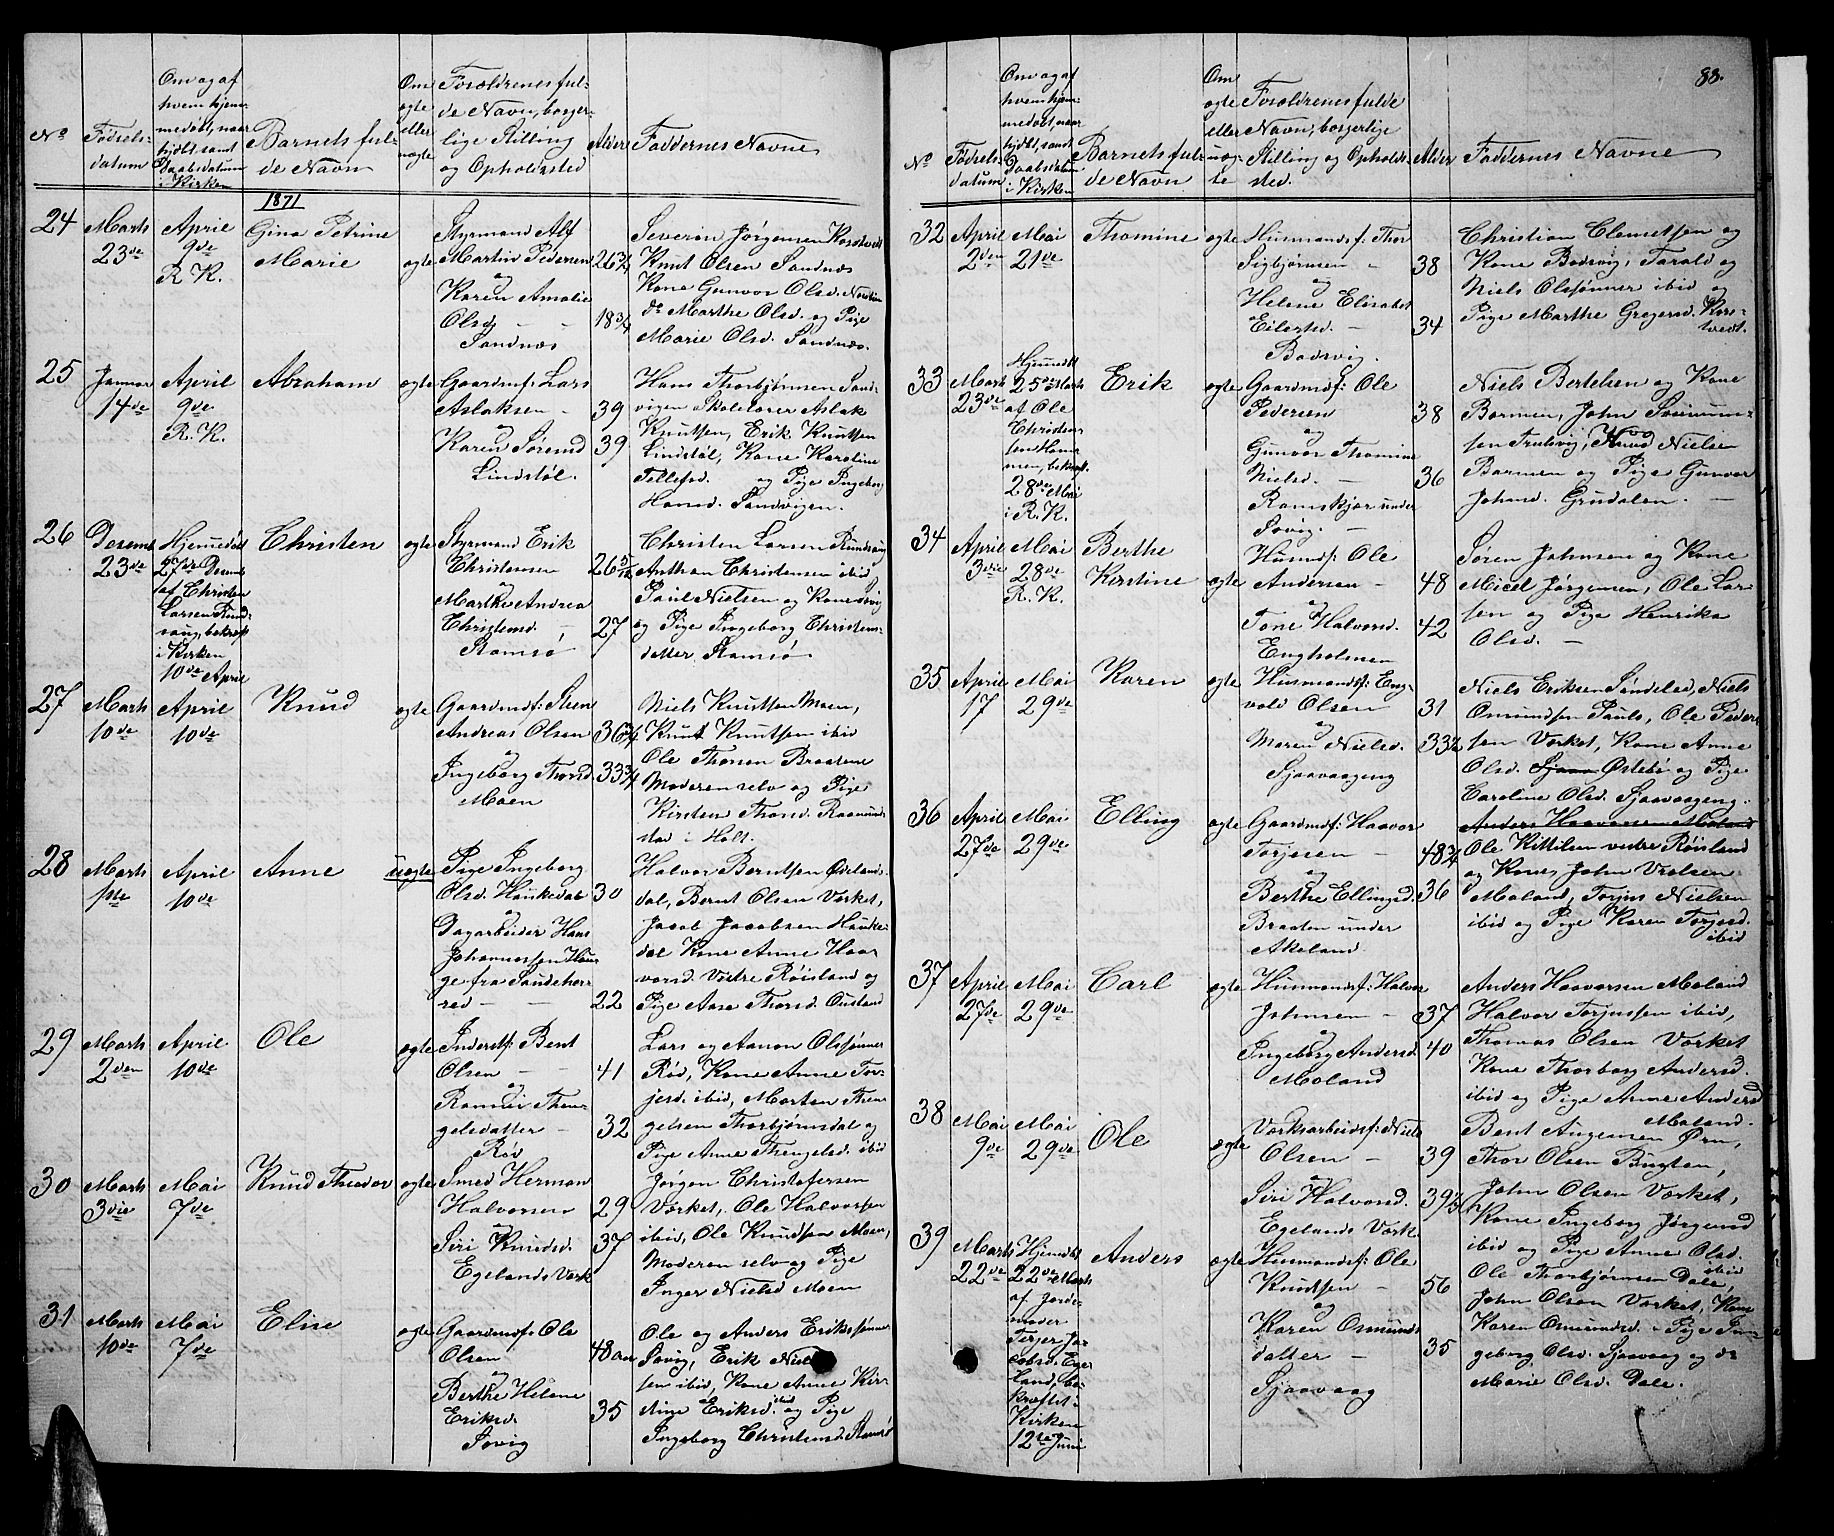 88.
No
Fødsels-
datum
Om og af
hvem hjem-
medøbt, naar
hjdbt, samt
Daabsdatum
i Kirken
Barnets ful-
de Navn
Om
ægte
eller
uægte
Forældrenes ful-
de Navn, borger-
lige Stilling
og Opholdssted
Alder
Faddernes Navne
1871
24
Marts
23de
April
9de
R. K.
Gina Petrine
Marie
ægte
Styrmand Alf
Martin Pedersen 26 3/4
og
Karen Amalie
Olsd. 18 3/4
Sandnæs
Severin Jørgensen
Knut Olsen Sandnæs
Kone Gunvor Olsd.
do Marthe Olsd. og Pige
Marie Olsd. Sandnæs.
25
Januar
14de
April
9de
R. K.
Abraham
ægte
Gaardmf: Lars
Aslaksen 39
og
Karen Sørensd 39
Lindstøl.
Hans Thorbjørnsen Sand-
vigen Skolelærer Aslak
Knutsen, Erik Knutsen
Lindstøl, Kone Karoline
Tellefsd. og Pige Ingeborg
Hansd. Sandvigen.
26
Desemb
23de
Hjemmedøbt
27de Desemb
af Christen
Larsen Rund-
vaug, bekræft
i Kirken
10de April
Christen
ægte
Styrmand Erik
Christensen
og
Marthe Andrea
Christensd. 27
Ramsø
Christen Larsen
Anthon Christensen ibid
Paul Nielsen og Kone
og Pige Ingeborg Christens-
datter Ramsø
27
Marts
10de
April
10de
Knud
ægte
Gaardmf: Sten
Andreas Olsen 36 3/4
og
Ingeborg Thorsd. 33 3/4
Moen
Niels Knutsen Moen,
Knut Knutsen ibid
Ole Thorsen Braatene
Moderen selv og Pige
Kirsten Thorsd.
stad i Holt.
28
Marts
1ste
April
10de
Anne
uægte
Pige Ingeborg
Olsd. Haukedal 30
og
Dagarbeider Hans
Johannessen Hau-
ge fra Sandeher-
red 22
Halvor Berntsen Ødelands
dal, Bernt Olsen Værket,
Jacob Jacobsen Hauke-
dal Kone Anne Haa-
vorsd. Vestre Røisland og
Pige Aase Thorsd. Ousland
29
Marts
2den
April
10de
Ole
ægte
Inderstf: Bent
Olsen 41
og
Ramar Then-
gelsdatter 32
Rød
Lars og Aanon Olssønner
Rød, Kone Anne Ter-
jesd. ibid, Morten Then-
gelsen Thorbjørnsdal og
Pige Anne Thengelsd. ibid
30
Marts
3die
Mai
7de
Knud Theodor
ægte
Smed Herman
Halvorsen 29
og
Siri Knudsd. 37
Egelands Værk
Jørgen Christofersen
Værket, Ole Halvorsen
ibid, Ole Knudsen Moen,
Moderen selv og Pige
Inger Nielsd Moen
31
Marts
10de
Mai
7de
Elise
ægte
Gaardmf: Ole
Olsen 48 aar
og
Berthe Helene
Eriksd. 35
Søvig
Ole og Anders Erikssønner
Søvig, Erik Niel-
sen ibid, Kone Anne Kir-
stine Eriksd. ibid og Pige
Ingeborg Christensd. Ramsø
No
Fødsels-
datum
Om og af
hvem hjem-
medøbt, naar
hjdbt, samt
Daabsdatum
i Kirken
Barnets ful-
de Navn
Om
ægte
eller
uæg-
te
Forældrenes fulde
Navn, borgerlige
Stilling og Opholds-
sted.
Alder
Faddernes Navne
32
April
2den
Mai
21de
Thomine
ægte
Husmandsf: Thor
Sigbjørnsen 38
og
Helene Elisabet
Eilertsd. 34
Bodsvig.
Christian Clemetsen og
Kone Bodsvig, Tarald og
Niels Olssønner ibid og
Pige Marthe Gregersd.
33
Marts
23de
Hjemdøbt
25de Marts
af Ole
Christen-
sen
bekræft.
28de Mai
i R. K.
Erik
ægte
Gaardmdf: Ole
Pedersen 38
og
Gunvor Thomine
Nielsd. 36
Ramskjær under
Søvig.
Niels Bertelsen og Kone
Barmen, John
sen Trulsvig, Knud Nielsen
Barmen og Pige Gunvor
Johnsd. Grudalen.
34
April
3die
Mai
28de
R. K.
Berthe
Kirstine
ægte
Husmdsf: Ole
Andersen 48
og
Tone Halvorsd. 42
Engholmen
Søren Johnsen og Kone
Jørgensen, Ole Lar-
sen og Pige Henrike
Olsd.
35
April
17
Mai
29de
Karen
ægte
Husmandsf: Eng-
vold Olsen 31
og
Maren Nielsd.
Sjaavaageng
Niels Eriksen Søndeled, Niels
Omundsen Pauls, Ole Peder-
sen Værket, Kone Anne
Olsd. Sjaav Østebø og Pige
Caroline Olsd. Sjaavaageng.
36
April
27de
Mai
29de
Elling
ægte
Gaardmdsf: Haavor
Torjesen 48 3/4
og
Berthe Ellingsd. 36
Braaten under
Akeland
Anders Haavorsen Moland
Ole Kittilsen vestre Røisland
og Kone, John
Moland, Torjus Nielsen
ibid og Pige Karen Torjesd.
ibid
37
April
27de
Mai
29de
Carl
ægte
Husmandsf: Halvor
Johnsen 37
og
Ingeborg Andersd. 40
Moland
Anders Haavorsen Moland
Halvor Torjussen ibid,
Thomas Olsen Værket
Kone Thorborg Andersd.
ibid og Pige Anne Andersd
Moland.
38
Mai
9de
Mai
29de
Ole
ægte
Værksarbeidsf: Niels
Olsen 39
og
Siri Halvorsd.
Egelands Værk
Bent Augensen Ørn,
Thor Olsen Bugten,
John Olsen Værket,
Kone Ingeborg Jørgensd
ibid og Pige Anne Olsd.
ibid
39
Marts
22de
Hjemdøbt
22de Marts
af Jorde-
moder
Terjer Ja-
cobsd. Ege-
land, be-
kræftet i
Kirken
12te Juni
Anders
ægte
Husmandsf: Ole
Knudsen 56
og
Karen Osmunds
datter 35
Sjaavaag
Ole Thorbjørnsen Dale,
John Olsen Værket, Kone
Karen Omundsd. Pige In-
geborg Olsd. Sjaavaag og do
Marie Olsd. Dale.